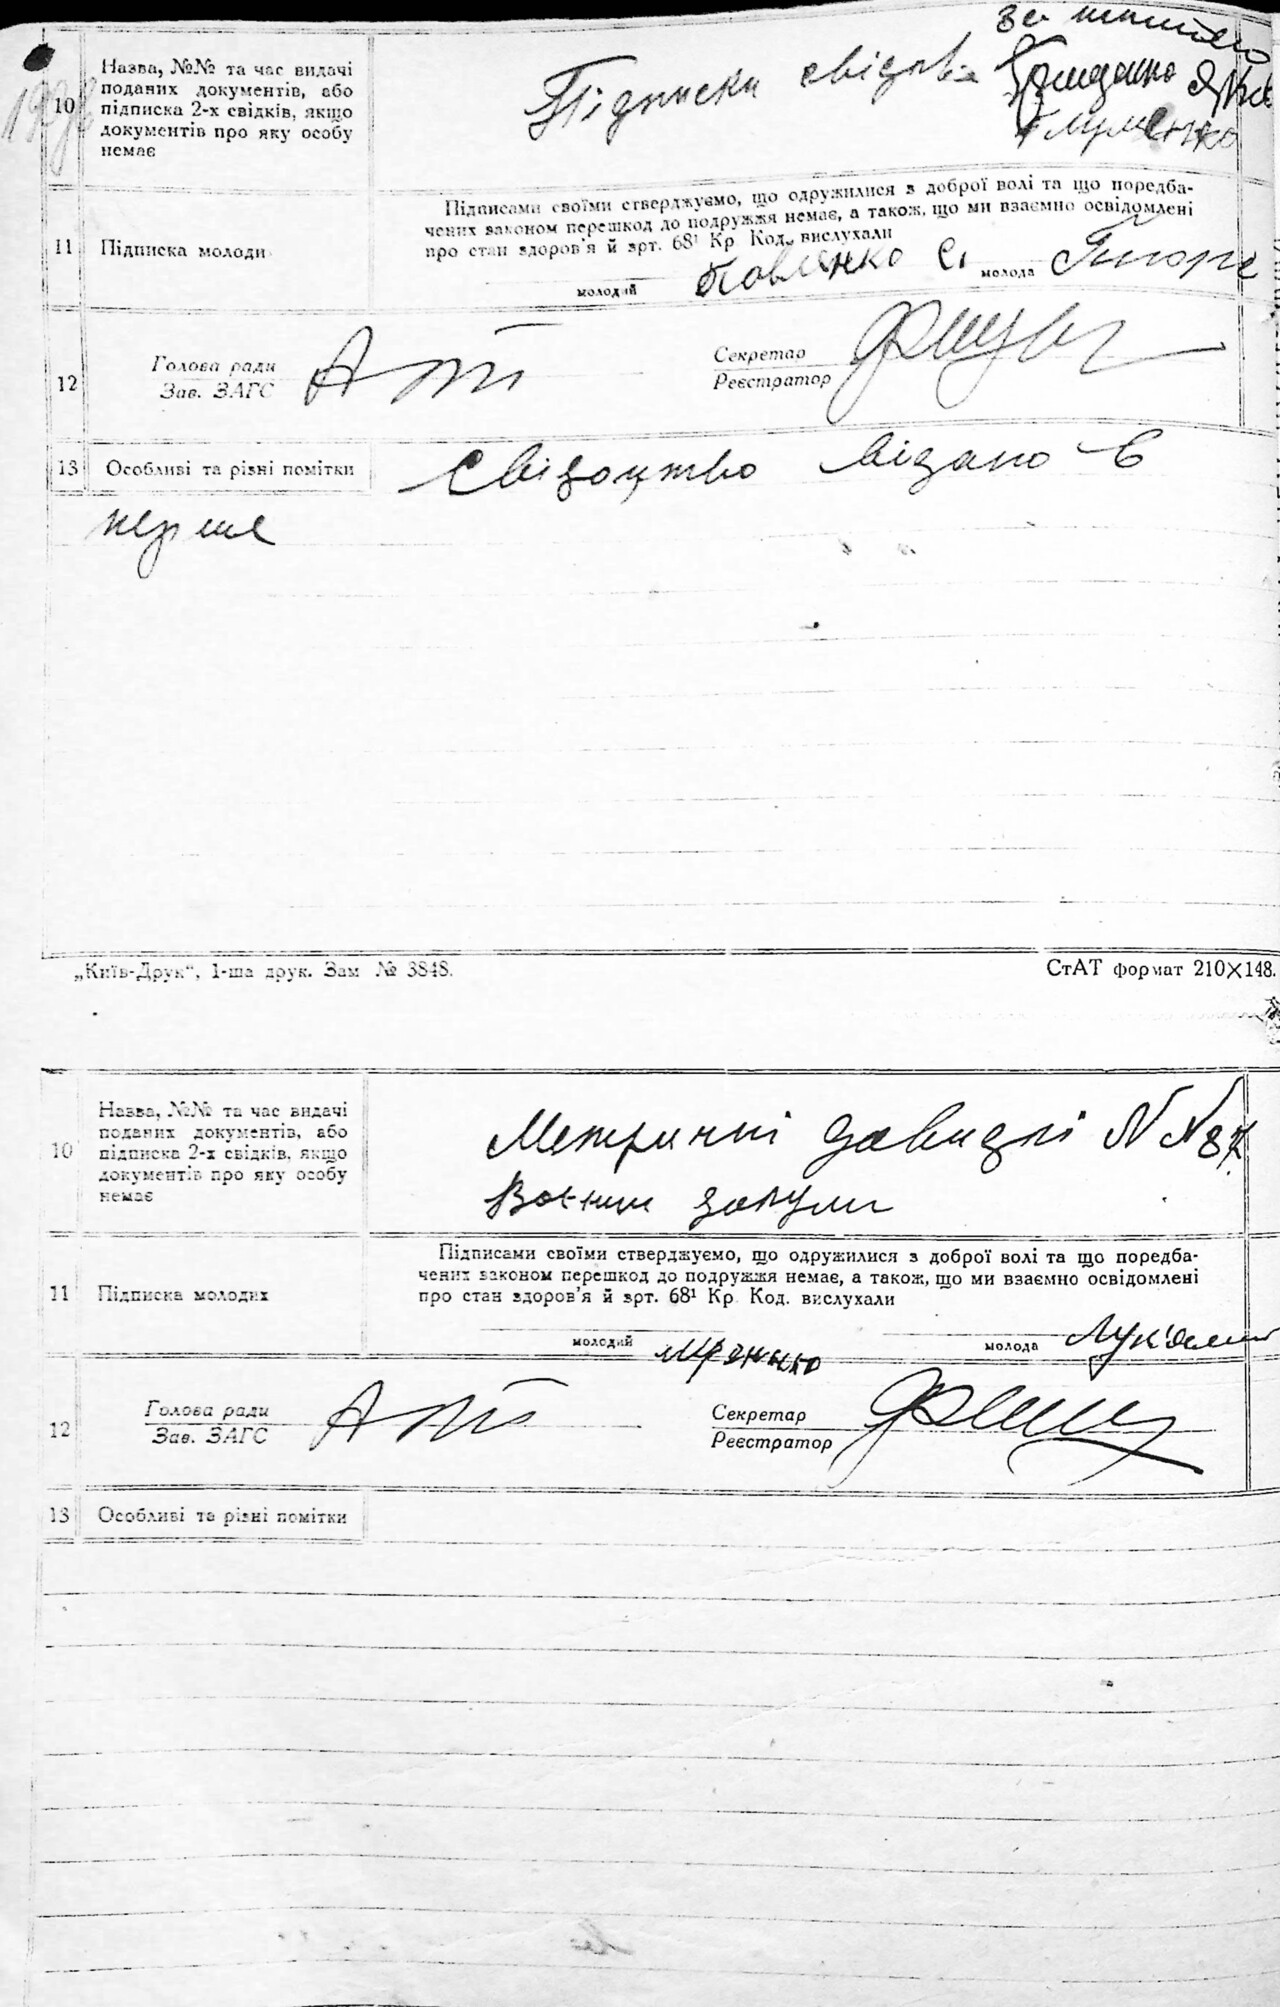 10
Назва, №№ та час видачі
поданих документів, або
підписка 2-х свідків, якщо
документів про яку особу
немає
Підписки свідків
11
Підписка молоди
Підписами своїми стверджуємо, що одружилися з доброї волі та що поредба-
чених законом перешкод до подружжя немає, а також, що ми взаємно освідомлені
про стан здоров'я й арт. 68¹ Кр. Код. вислухали
молодий
молода
12
Голова ради
Зав. ЗАГС
Секретар
Реєстратор
13
Особливі та різні помітки
Свідоцтво видано
перше
„Київ-Друк“, 1-ша друк. Зам № 3848.
СтАТ формат 210×148.
10
Назва, №№ та час видачі
поданих документів, або
підписка 2-х свідків, якщо
документів про яку особу
немає
Метричні довидкі N N 87
11
Підписка молодих
Підписами своїми стверджуємо, що одружилися з доброї волі та що поредба-
чених законом перешкод до подружжя немає, а також, що ми взаємно освідомлені
про стан здоров'я й арт. 68¹ Кр. Код. вислухали
молодий
молода
12
Голова ради
Зав. ЗАГС
Секретар
Реєстратор
13
Особливі та різні помітки